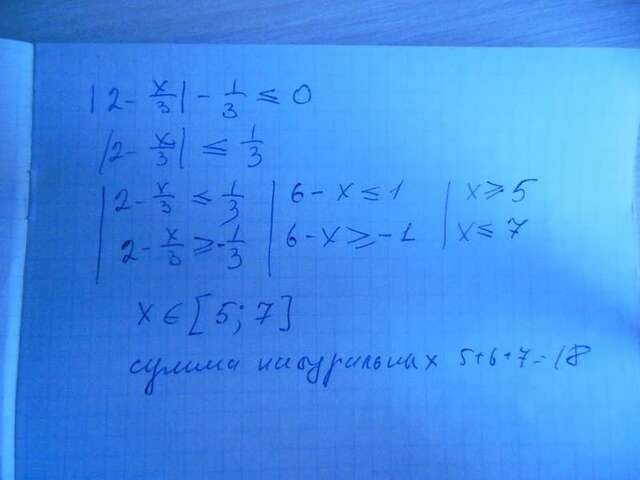 |2 - x/3| - 1/3 ≤ 0
|2 - x/3| ≤ 1/3
| 2 - x/3 ≤ 1/3 | 6 - x ≤ 1 | x ≥ 5
| 2 - x/3 ≥ -1/3 | 6 - x ≥ -1 | x ≤ 7
x ∈ [5; 7]
сумма натуральных 5+6+7=18